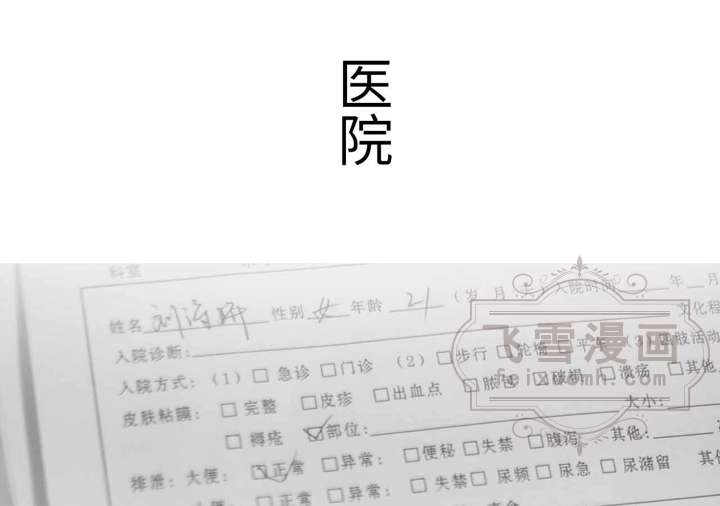 医
院
科室
姓名 刘 性别 女 年龄 21 (岁 月 天) 入院时间 年 月
入院诊断: 文化程
入院方式: (1) □ 急诊 □门诊 (2) □步行 □轮椅 □平车 (3) 四肢活动
皮肤粘膜: □ 完整 □皮疹 □出血点 □脓包 □破损 □溃疡 □其他
□ 褥疮 ☑部位: 大小:
排泄: 大便: ☑正常 □异常: □便秘 □失禁 □腹泻 其他:
□正常 □异常: □ 失禁 □ 尿频 □尿急 □ 尿潴留 其
飞雪漫画
feixuemh.com